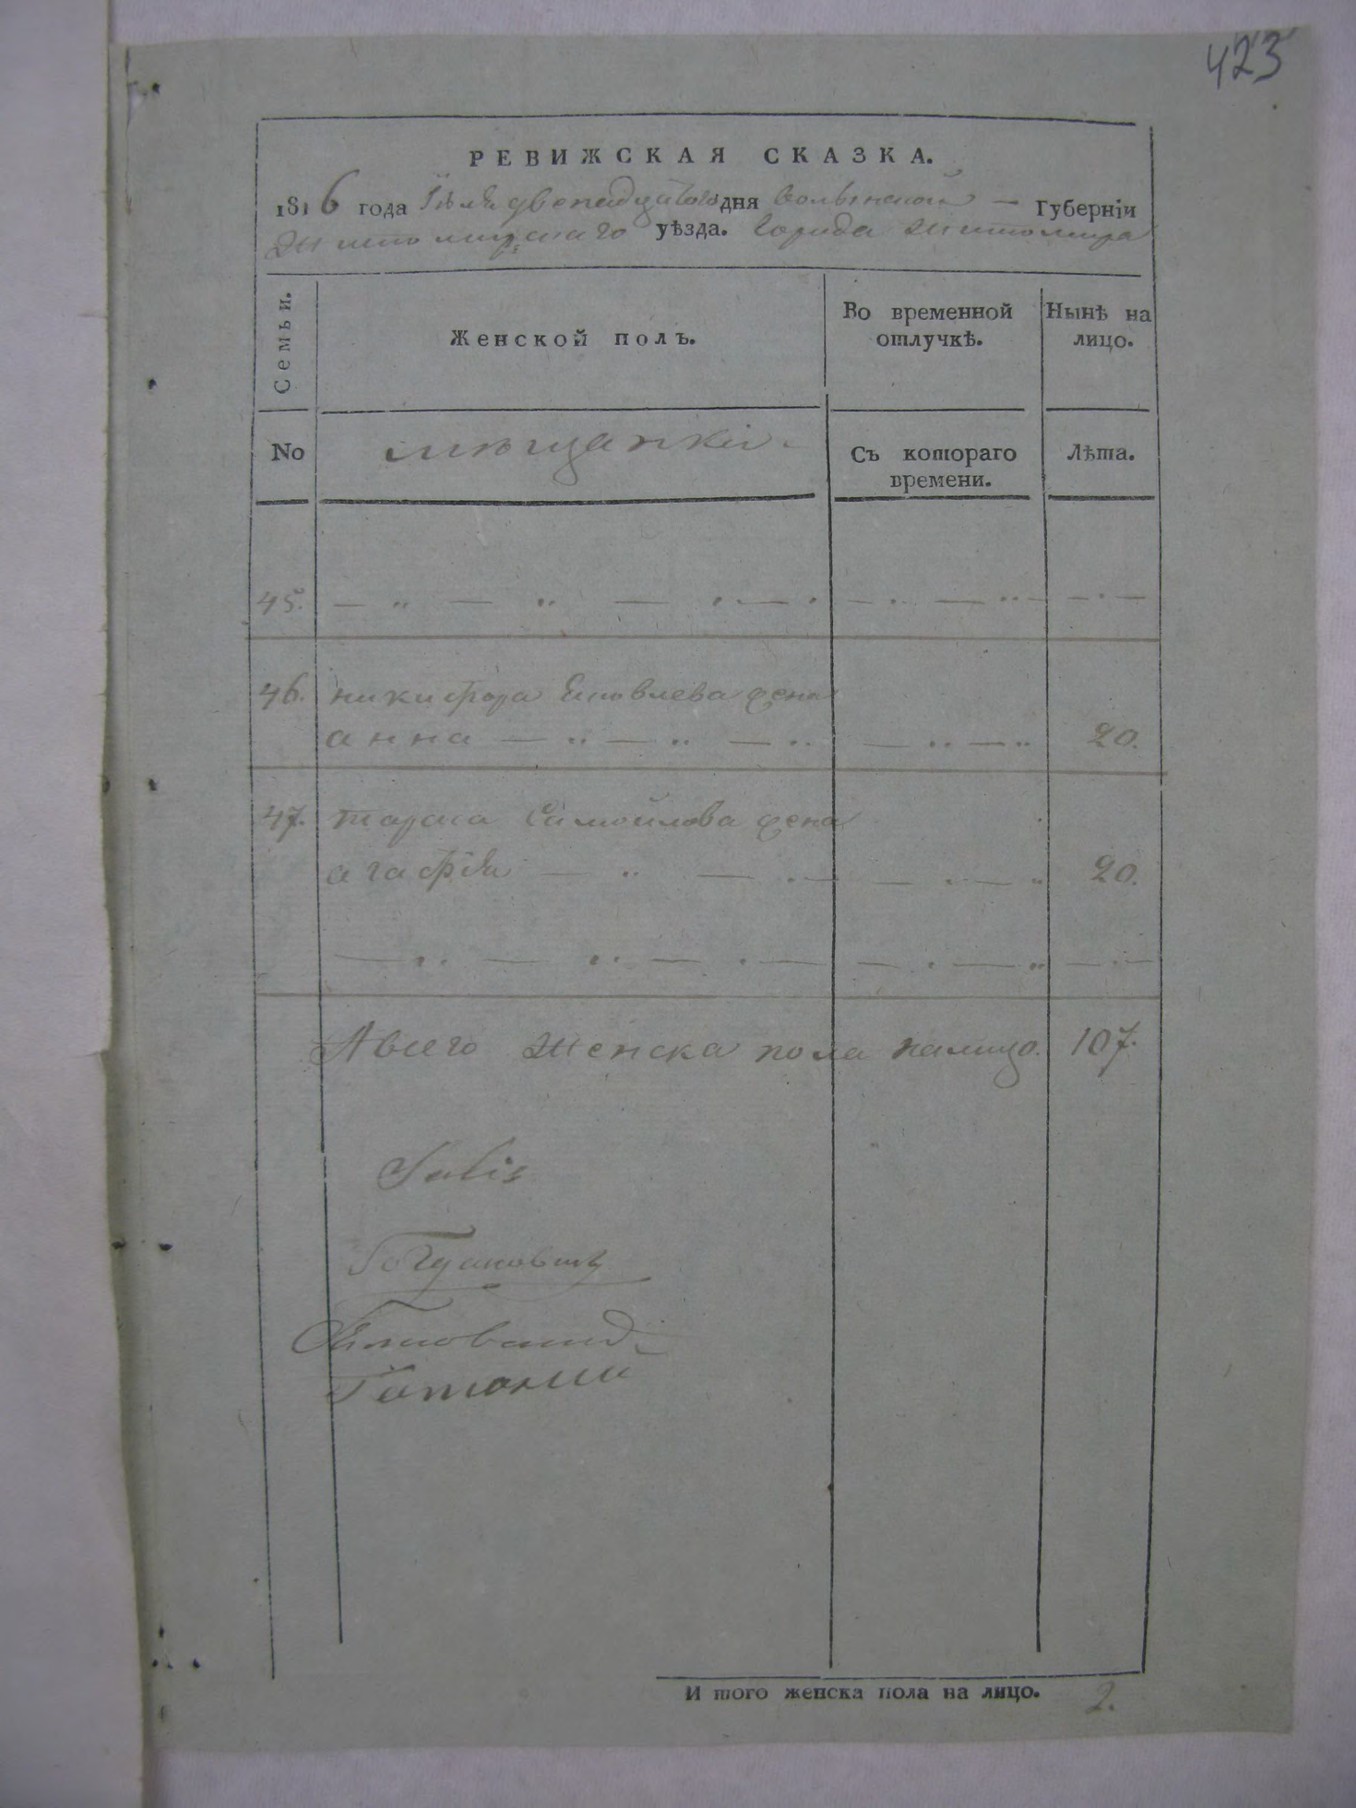 423
РЕВИЖСКАЯ СКАЗКА.
1816 года Іюля двенадцатого дня Волынской — Губерніи
Житомирскаго уѣзда. Города Житомира
Семьи.
Женской полъ.
Во временной отлучкѣ.
Нынѣ на лицо.
No
мѣщанки
Съ котораго времени.
Лѣта.
45. — „ — „ — . — . — . — „ — . —
46. никифора Яковлева жена
анна — „ — „ — „ — „ — „ 20.
47. тараса Самойлова жена
агафія — „ — . — — . — „ 20.
А всего женска пола налицо. 107.
Богдановичъ
И того женска пола на лицо. 2.